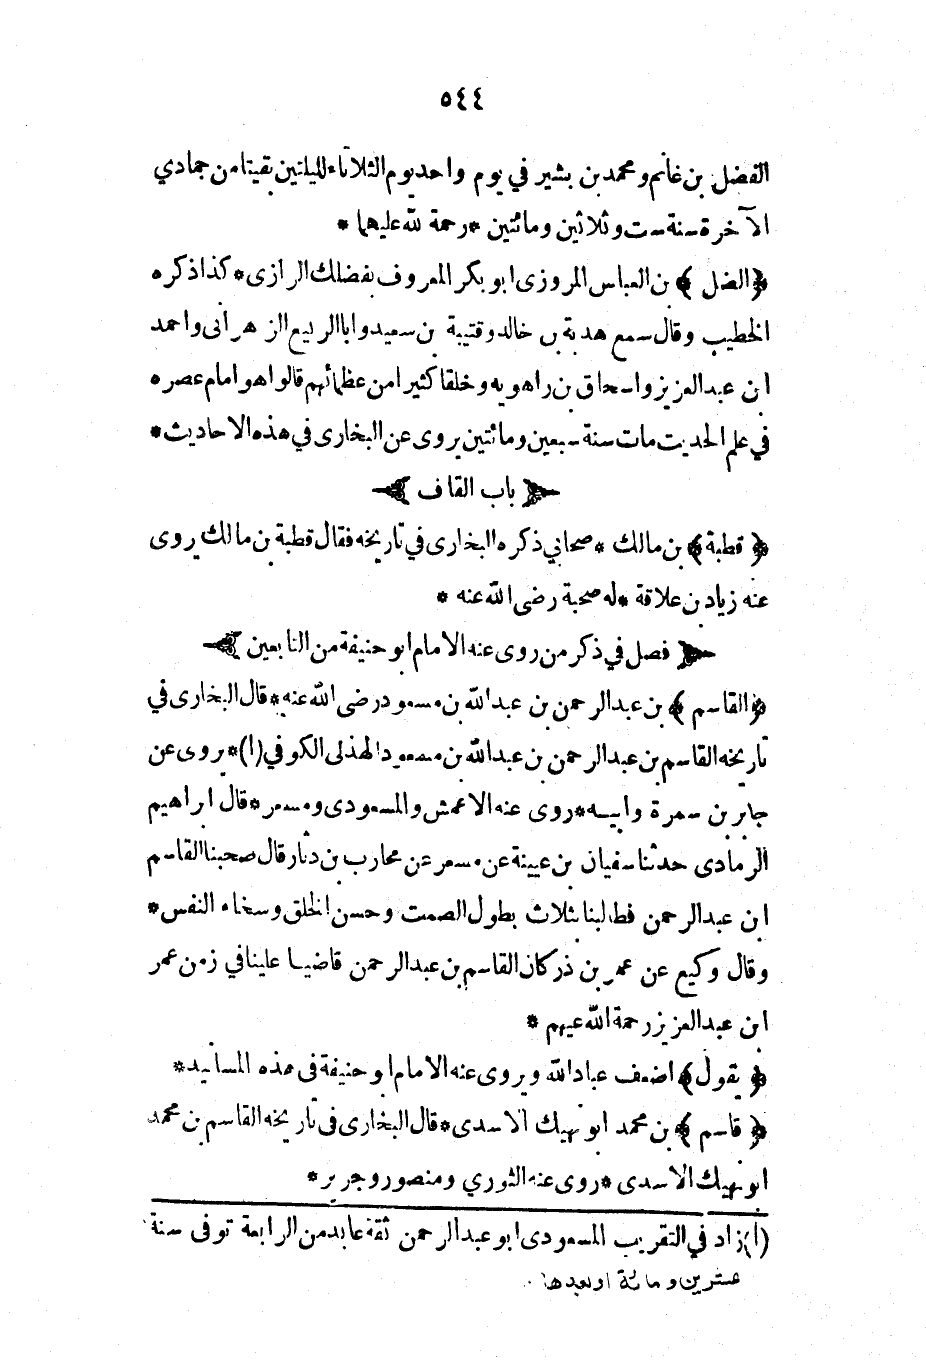 ٥٤٤
الفضل بن غانم ومحمد بن بشير في يوم واحد يوم الثلاثاء لليلتين بقيتا من جمادي
الآخرة سنة ست وثلاثين ومائتين * رحمة لله عليهما *
﴿الفضل﴾ بن العباس المروزى ابو بكر المعروف بفضلك الرازى * كذا ذكره
الخطيب وقال سمع هدبة بن خالد وقتيبة بن سعيد وابا الربيع الزهرانى واحمد
ابن عبدالعزيز واسحاق بن راهويه وخلقا كثيرا من عظمائهم قالوا هو امام عصره
في علم الحديث مات سنة سبعين ومائتين يروى عن البخارى في هذه الاحاديث *
باب القاف
﴿قطبة﴾ بن مالك * صحابي ذكره البخارى في تاريخه فقال قطبة بن مالك يروى
عنه زياد بن علاقة * له صحبة رضى الله عنه *
فصل في ذكر من روى عنه الامام ابو حنيفة من التابعين
﴿القاسم﴾ بن عبدالرحمن بن عبد الله بن مسعود رضى الله عنه * قال البخارى في
تاريخه القاسم بن عبدالرحمن بن عبدالله بن مسعود الهذلى الكوفي (١) * يروى عن
جابر بن سمرة وابيه * روى عنه الاعمش والمسعودى ومسعر * قال ابراهيم
الرمادى حدثنا سفيان بن عيينة عن مسعر عن محارب بن دثار قال صحبنا القاسم
ابن عبدالرحمن فطالبنا بثلاث بطول الصمت وحسن الخلق وسخاء النفس *
وقال وكيع عن عمر بن ذر كان القاسم بن عبدالرحمن قاضيا علينا في زمن عمر
ابن عبدالعزيز رحمة الله عيهم *
﴿يقول﴾ اضعف عباد الله ويروى عنه الامام ابو حنيفة فى هذه المسانيد *
﴿قاسم﴾ بن محمد ابو نهيك الاسدى * قال البخارى فى تاريخه القاسم بن محمد
ابو نهيك الاسدى * روى عنه الثوري ومنصور وجرير *
(١) زاد في التقريب المسعودى ابو عبدالرحمن ثقة عابد من الرابعة توفى سنة
عشرين ومائة او بعدها .